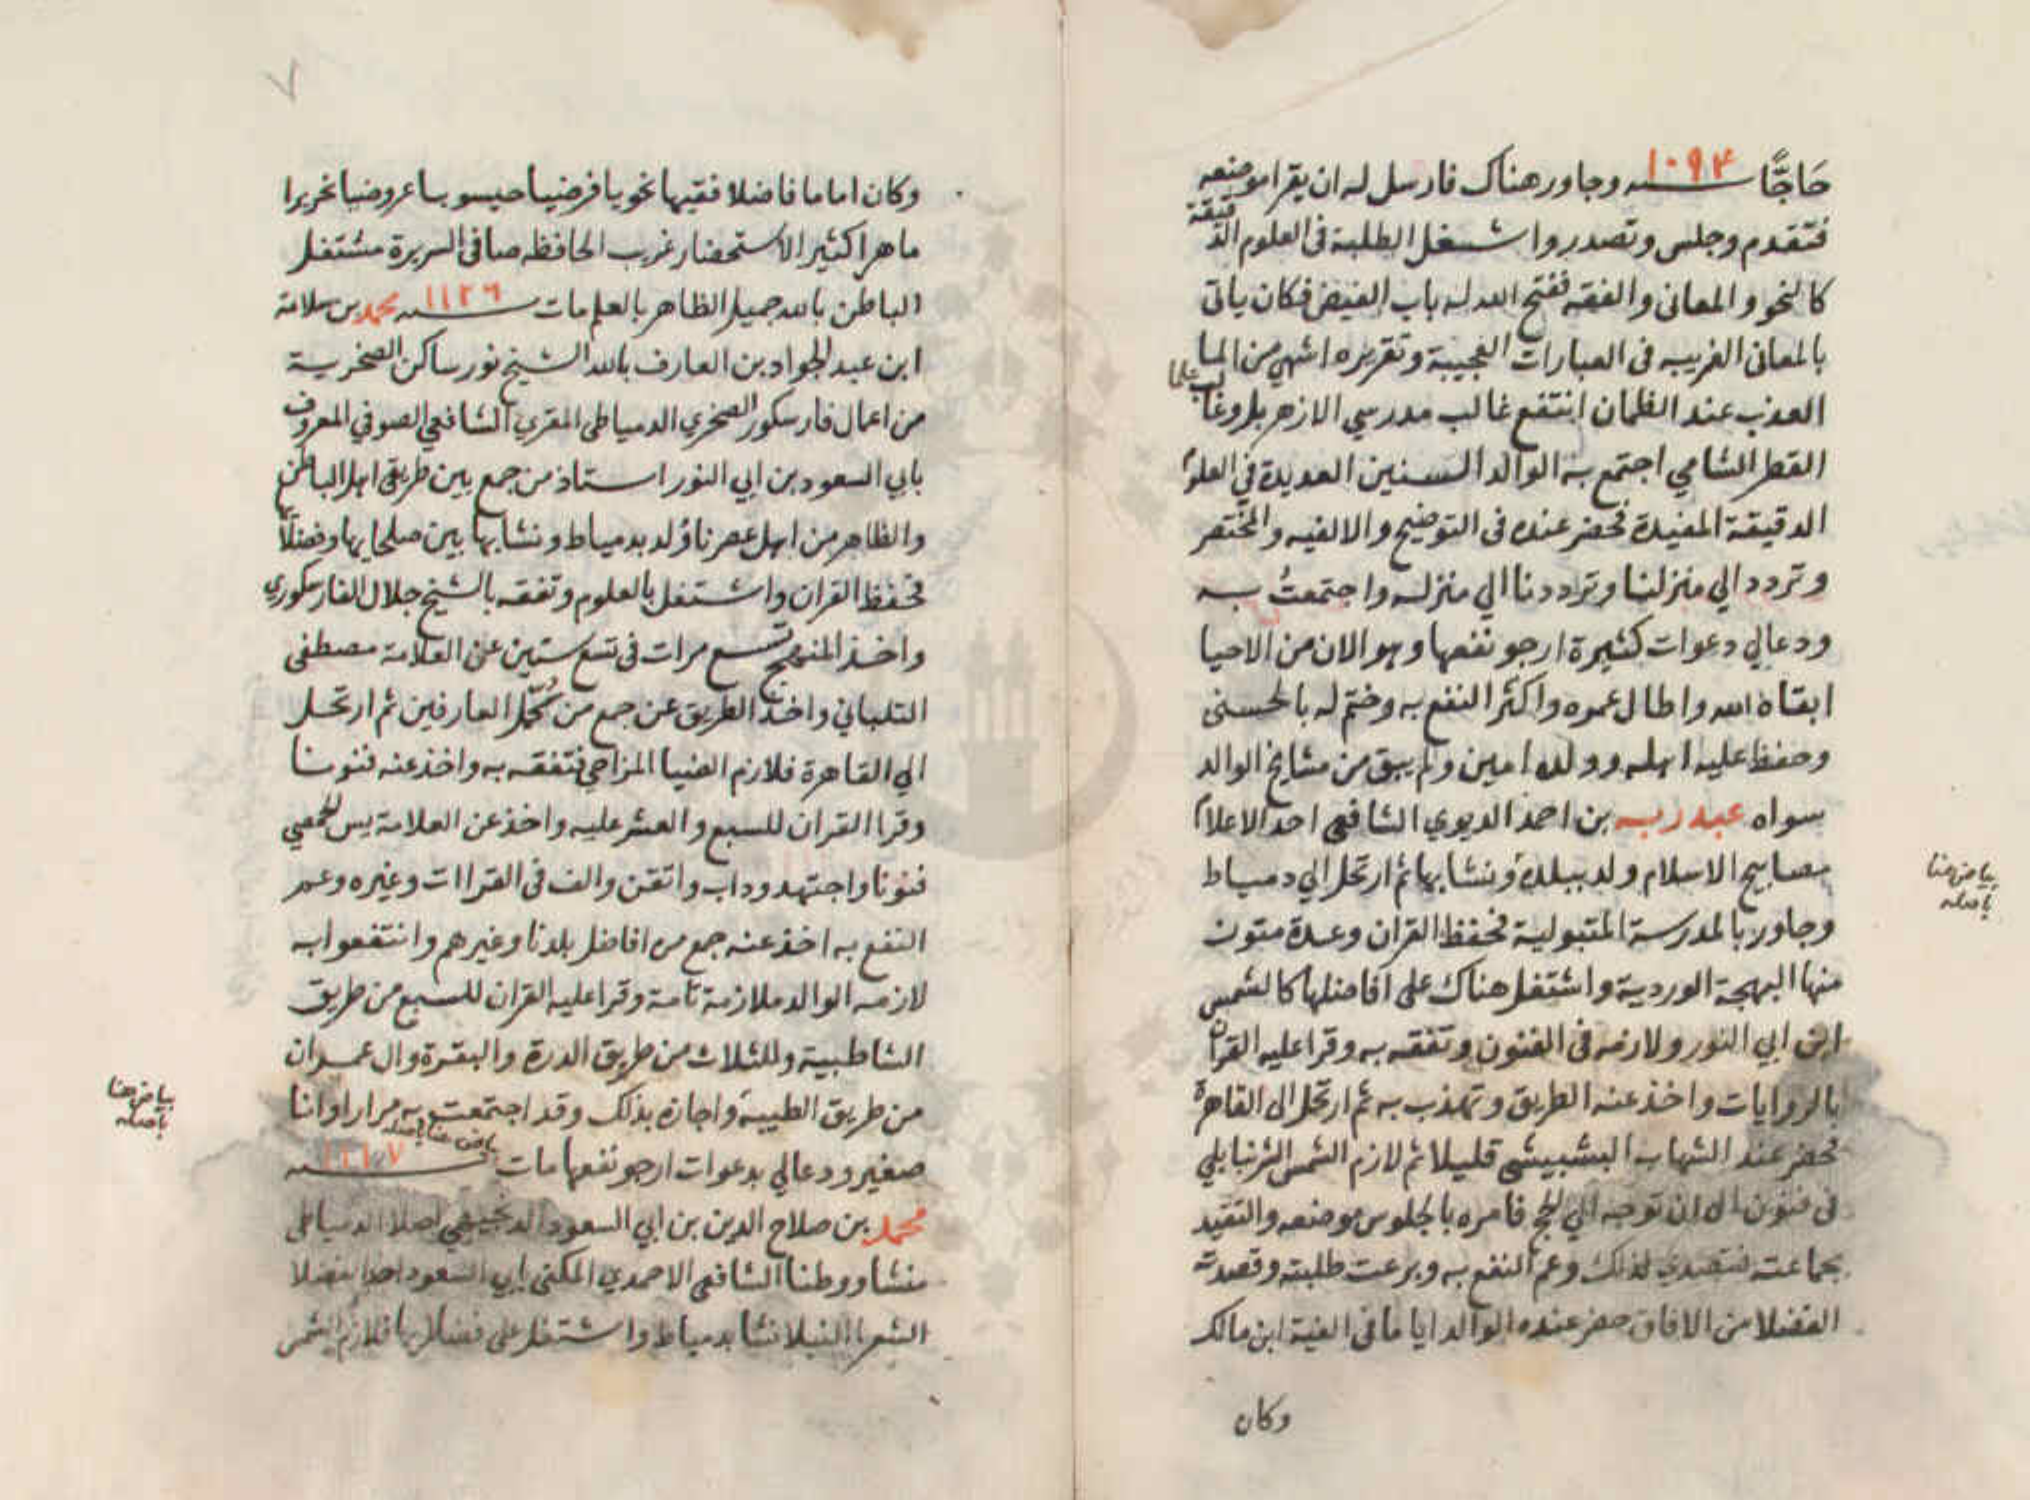 حَاجًّا سنه ١٠٩٤ وجاور هناك فارسل له ان يقرا موضعه
فتقدم وجلس وتصدر واشغل الطلبة فى العلوم الدقيقة
كالنحو والمعانى والفقه ففتح الله له باب الفيض فكان ياتى
بالمعانى الغريبه فى العبارات العجيبة وتقريره اشهى من الما
العذب عند الظمان انتفع به غالب مدرسي الازهر بل وغالب علما
القطر الشامي اجتمع به الوالد السنين العديدة في العلوم
الدقيقة المفيدة فحضر عنده فى التوضيح والالفيه والمختصر
وتردد الي منزلنا وترددنا الي منزله واجتمعتُ به
ودعا لي دعوات كثيرة ارجو نفعها وهو الان من الاحيا
ابقاه الله واطال عمره واكثر النفع به وختم له بالحسنى
وحفظ عليه اهله وولده امين ولم يبق من مشايخ الوالد
سواه عبد ربه بن احمد الديوي الشافعى احد الاعلام
مصابيح الاسلام ولد ببلده ونشا بها ثم ارتحل الي دمياط
وجاور بالمدرسة المتبولية فحفظ القران وعدة متون
منها البهجة الوردية واشتغل هناك على افاضلها كالشمس
ابن ابي النور ولازمه فى الفنون وتفقه به وقرا عليه القران
بالروايات واخذ عنه الطريق وتهذب به ثم ارتحل الى القاهرة
فحضر عند الشهاب البشبيشى قليلا ثم لازم الشمس الشرنبابلي
فى فنون الى ان توجه الي الحج فامره بالجلوس موضعه والتقيد
بجماعته فتصدي لذلك وعم النفع به وبرعت طلبته وقصدته
الفضلا من الافاق حضر عنده الوالد اياما فى الفية ابن مالك
وكان
بياض هنا
باصله
٧
وكان اماما فاضلا فقيها نحويا فرضيا حيسوبا عروضيا نحريرا
ماهرا كثير الاستحضار غريب الحافظه صافى السريرة مشتغل
الباطن بالله جميل الظاهر بالعلم مات سنه ١١٢٦ محمد بن سلامة
ابن عبد الجواد بن العارف بالله الشيخ نور ساكن الصخرية
من اعمال فارسكور الصخري الدمياطى المقري الشافعي الصوفي المعروف
بابي السعود بن ابي النور استاذ من جمع بين طريقى اهل الباطن
والظاهر من اهل عصرنا وُلد بدمياط ونشا بها بين صلحايها وفضلائها
فحفظ القران واشتغل بالعلوم وتفقه بالشيخ جلال الفارسكوري
واخذ المنهج تسع مرات فى تسع سنين عن العلامة مصطفى
التلبانى واخذ الطريق عن جمع من كمّل العارفين ثم ارتحل
الي القاهرة فلازم الضيا المزاحي فتفقه به واخذ عنه فنونا
وقرا القران للسبع والعشر عليه واخذ عن العلامة يس الحمصي
فنونا واجتهد وداب واتقن والف فى القراات وغيره وعم
النفع به اخذ عنه جمع من افاضل بلدنا وغيرهم وانتفعوا به
لازمه الوالد ملازمة تامة وقرا عليه القران للسبع من طريق
الشاطبية وللثلاث من طريق الدرة والبقرة وال عمران
من طريق الطيبة واجازه بذلك وقد اجتمعت به مرارا وانا
صغير ودعا لي بدعوات ارجو نفعها مات بياض هنا باصله سنه ١١١٧
محمد بن صلاح الدين بن ابي السعود الدنجيهي اصلا الدمياطى
منشا ووطنا الشافعى الاحمدي المكنى بابي السعود احد الفضلا
الشعرا النبلا نشا بدمياط واشتغل على فضلائها فلازم الشمس
بياض هنا
باصله